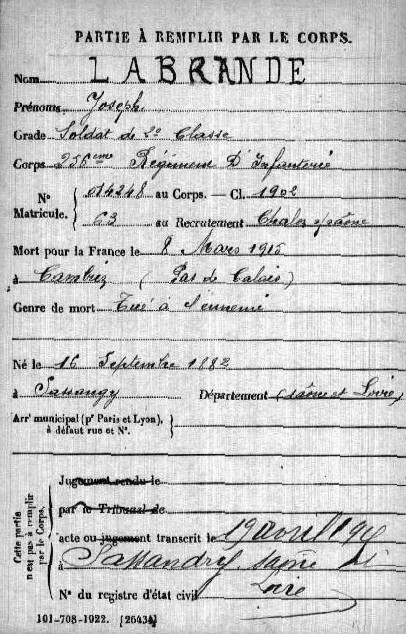 PARTIE À REMPLIR PAR LE CORPS.
Nom LABRANDE
Prénoms Joseph
Grade Soldat de 2e Classe
Corps 256ème Régiment D'Infanterie
N° Matricule. { 014248 au Corps. — Cl. 1902
63 au Recrutement Chalon s/saône
Mort pour la France le 8 Mars 1915
à Cambrin (Pas de Calais)
Genre de mort Tué à l'ennemi
Né le 16 Septembre 1882
à Sassangy Département (Saône et Loire)
Arrt municipal (pr Paris et Lyon), à défaut rue et N°. }
Cette partie n'est pas à remplir par le Corps.
Jugement rendu le
par le Tribunal de
acte ou jugement transcrit le 19 avril
à saône et
N° du registre d'état civil Loire
101-708-1922. [26434]